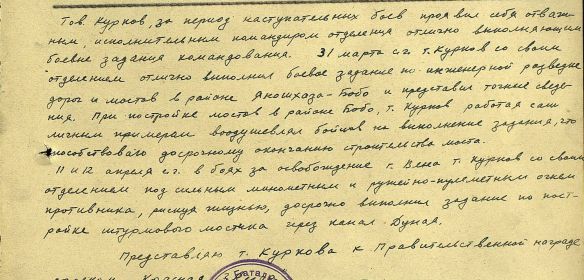 Тов. Курков, за период наступательных боев проявил себя отваж-
ным, исполнительным командиром отделения отлично выполняющим
боевые задания командования. 31 марта с.г. т. Курков со своим
отделением отлично выполнил боевое задание по инженерной разведке
дорог и мостов в районе Яношхаза-Бобо и представил точные сведе-
ния. При постройке мостов в районе Бобо, т. Курков работая сам
личным примером воодушевлял бойцов на выполнение задания, что
способствовало досрочному окончанию строительства моста.
11 и 12 апреля с.г. в боях за освобождение г. Вена т. Курков со своим
отделением под сильным минометным и ружейно-пулеметным огнем
противника, рискуя жизнью, досрочно выполнил задание по пост-
ройке штурмового мостика через канал Дуная.
Представляю т. Куркова к Правительственной награде
Батал